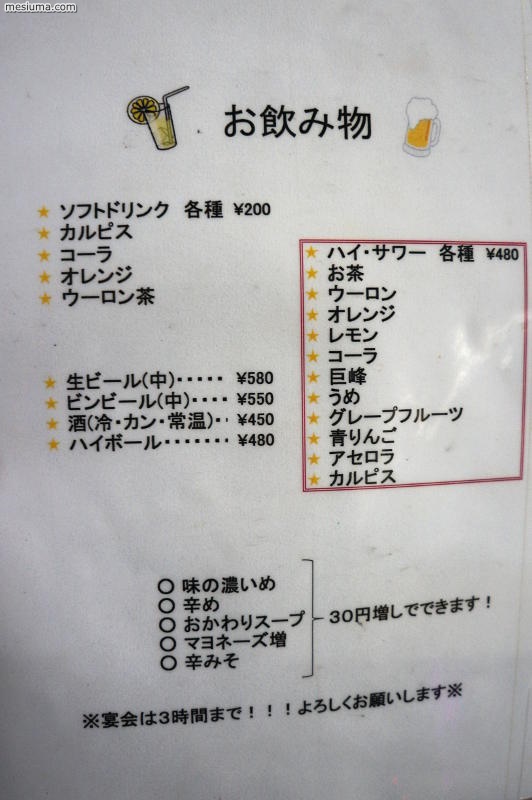 mesiuma.com
お飲み物
★ ソフトドリンク 各種 ¥200
★ カルピス
★ コーラ
★ オレンジ
★ ウーロン茶
★ 生ビール(中)・・・・・ ¥580
★ ビンビール(中)・・・・ ¥550
★ 酒(冷・カン・常温)・・ ¥450
★ ハイボール・・・・・・・ ¥480
★ ハイ・サワー 各種 ¥480
★ お茶
★ ウーロン
★ オレンジ
★ レモン
★ コーラ
★ 巨峰
★ うめ
★ グレープフルーツ
★ 青りんご
★ アセロラ
★ カルピス
○ 味の濃いめ
○ 辛め
○ おかわりスープ
○ マヨネーズ増
○ 辛みそ
30円増しでできます!
※宴会は3時間まで!!!よろしくお願いします※